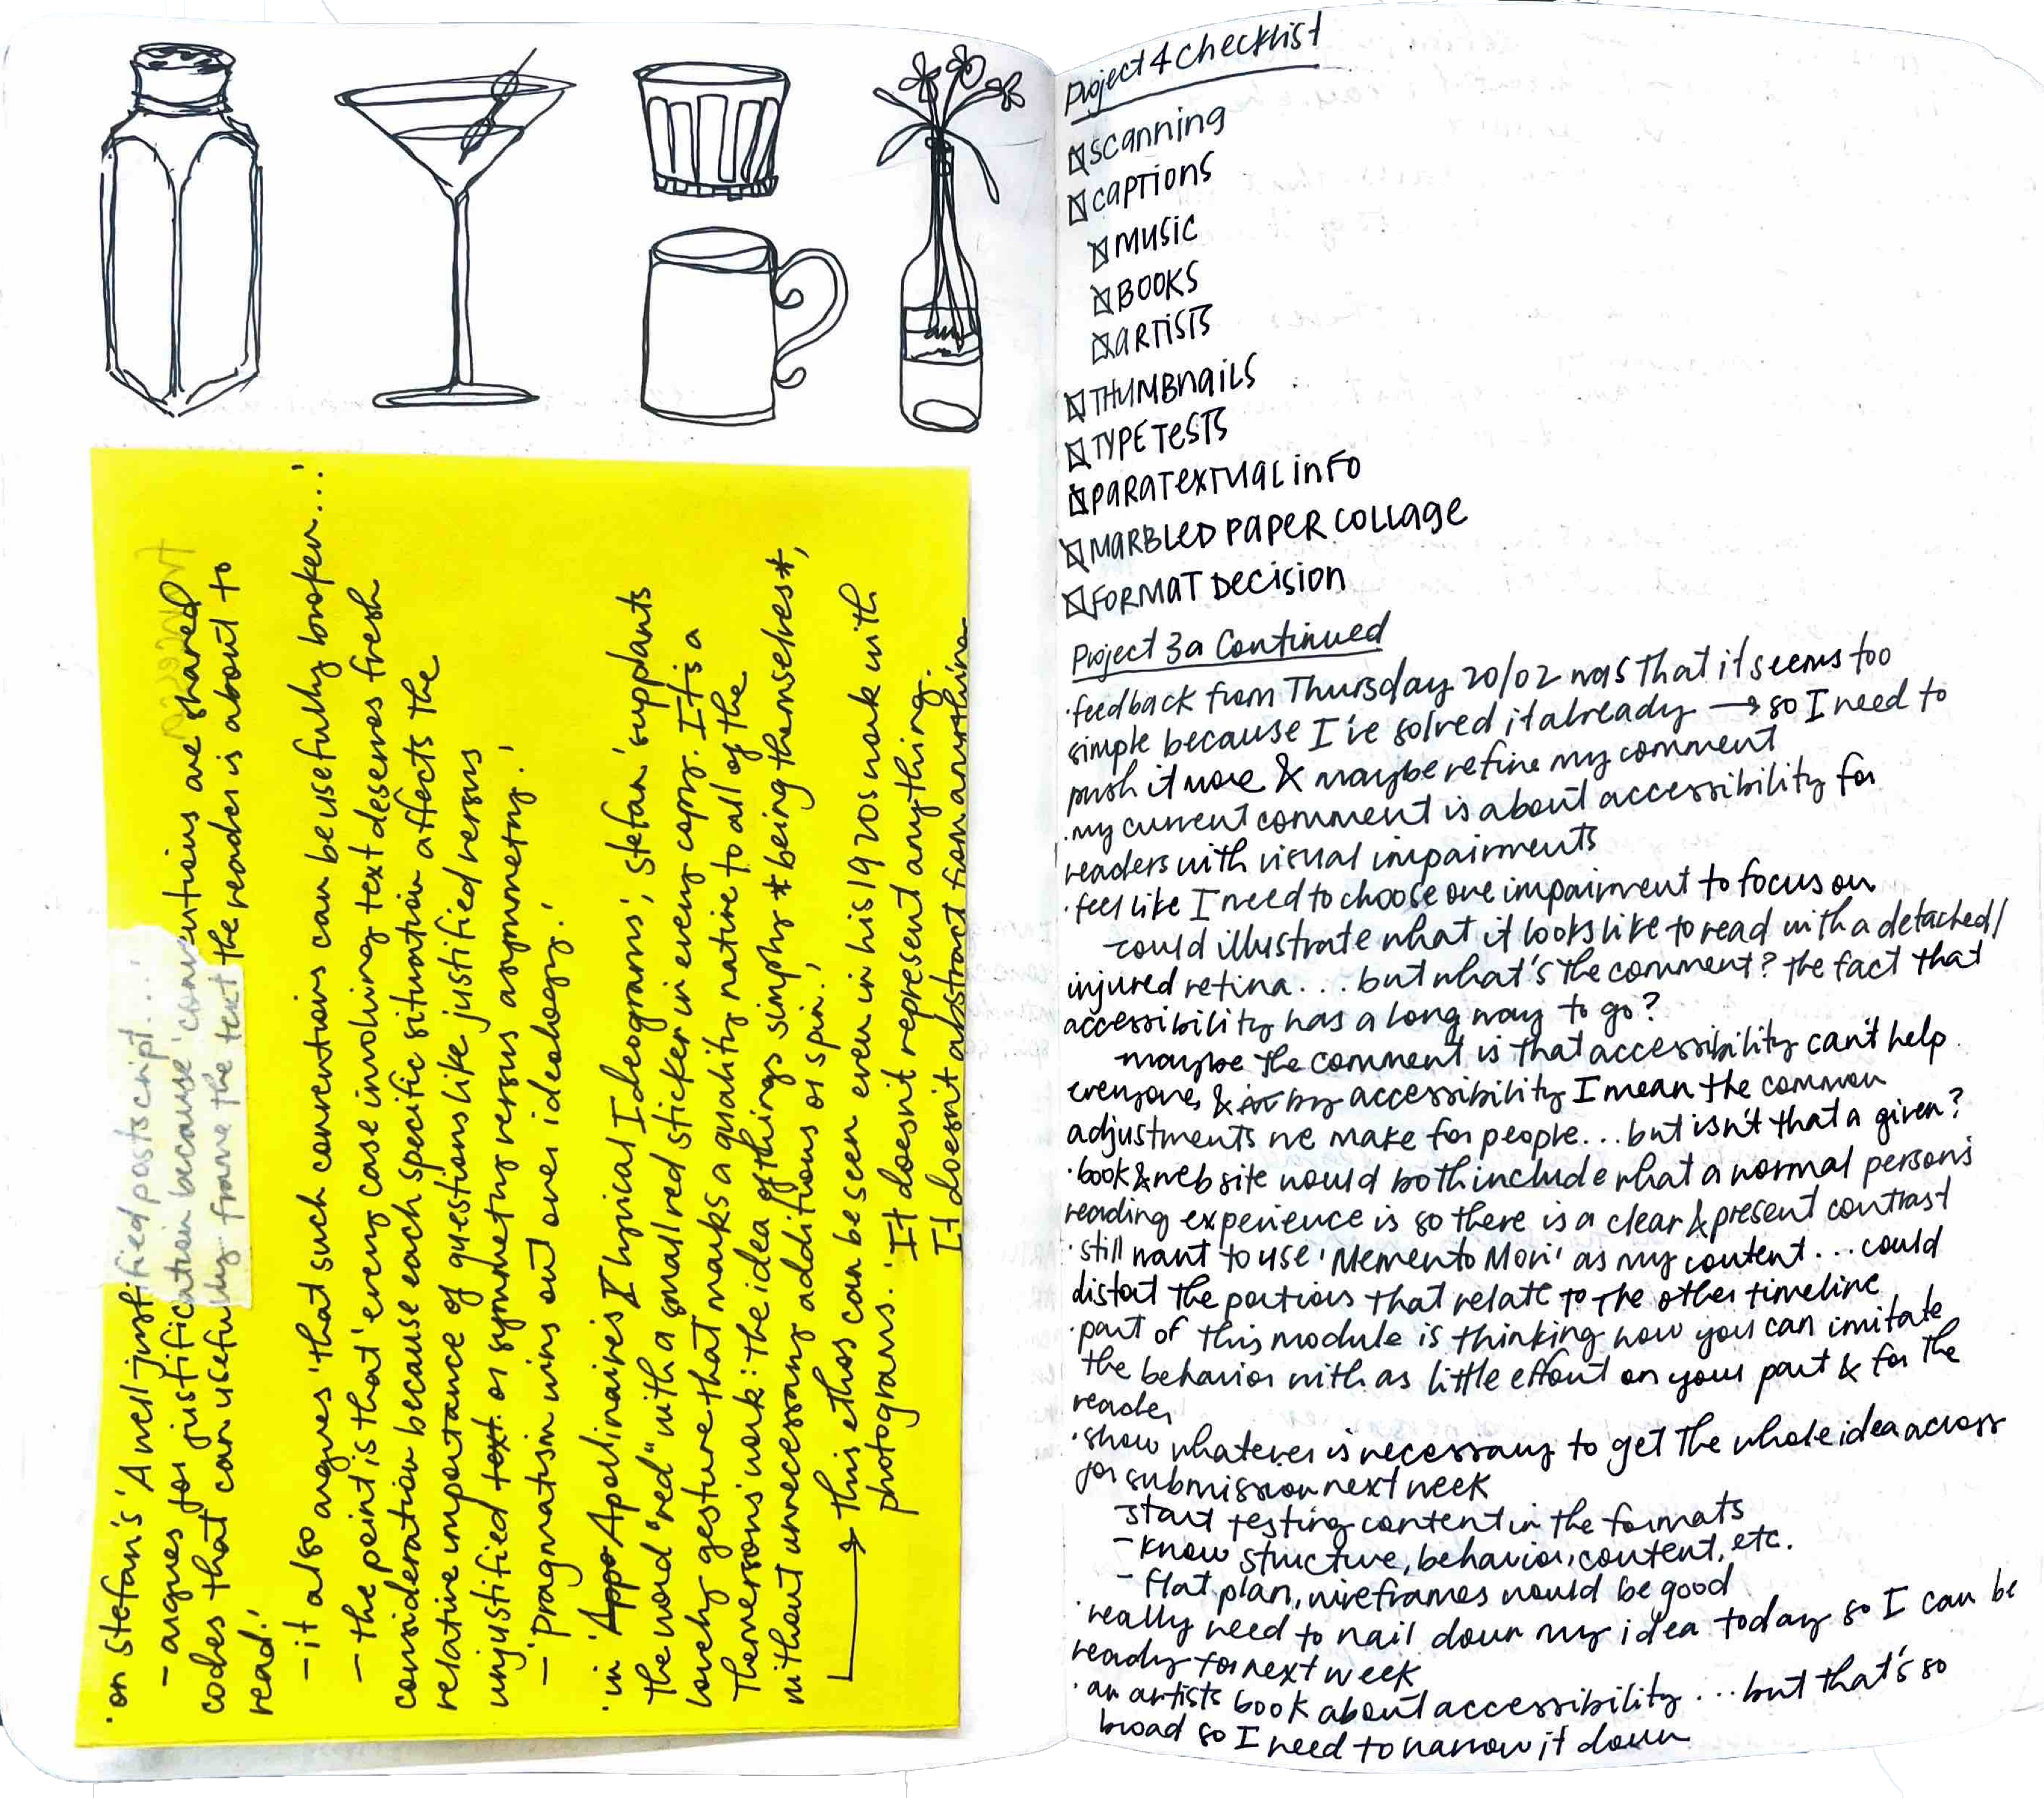 ·on Stefan's 'A well-justified postscript...'
– argues for justification because 'conventions are shared
codes that can usefully frame the text the reader is about to
read.'
– it also argues 'that such conventions can be usefully broken...'
– the point is that 'every case involving text deserves fresh
consideration because each specific situation affects the
relative importance of questions like justified versus
unjustified text or symmetry versus asymmetry.'
– 'pragmatism wins out over ideology.'
·in 'Appo Apollinaire's I lyrical Ideograms', Stefan 'supplants
the word "red" with a small red sticker in every copy. It is a
lovely gesture that marks a quality native to all of the
Themersons' work: the idea of things simply *being themselves*,
without unnecessary additions or spin.'
→ this ethos can be seen even in his 1920s work with
photograms. 'It doesn't represent anything.
It doesn't abstract from anything.
Project 4 Checklist
scanning
captions
music
books
artists
thumbnails
type tests
paratextual info
marbled paper collage
format decision
Project 3a Continued
·feedback from Thursday 20/02 was that it seems too
simple because I've solved it already → so I need to
push it more & maybe refine my comment
·my current comment is about accessibility for
readers with visual impairments
·feel like I need to choose one impairment to focus on
-could illustrate what it looks like to read with a detached/
injured retina... but what's the comment? the fact that
accessibility has a long way to go?
-maybe the comment is that accessibility can't help
everyone, & by accessibility I mean the common
adjustments we make for people... but isn't that a given?
·book & website would both include what a normal person's
reading experience is so there is a clear & present contrast
·still want to use 'Memento Mori' as my content... could
distort the portions that relate to the other timeline
·part of this module is thinking how you can imitate
the behavior with as little effort on your part & for the
reader
·show whatever is necessary to get the whole idea across
for submission next week
-start testing content in the formats
– know structure, behavior, content, etc.
– flat plan, wireframes would be good
·really need to nail down my idea today so I can be
ready for next week
·an artists book about accessibility... but that's so
broad so I need to narrow it down